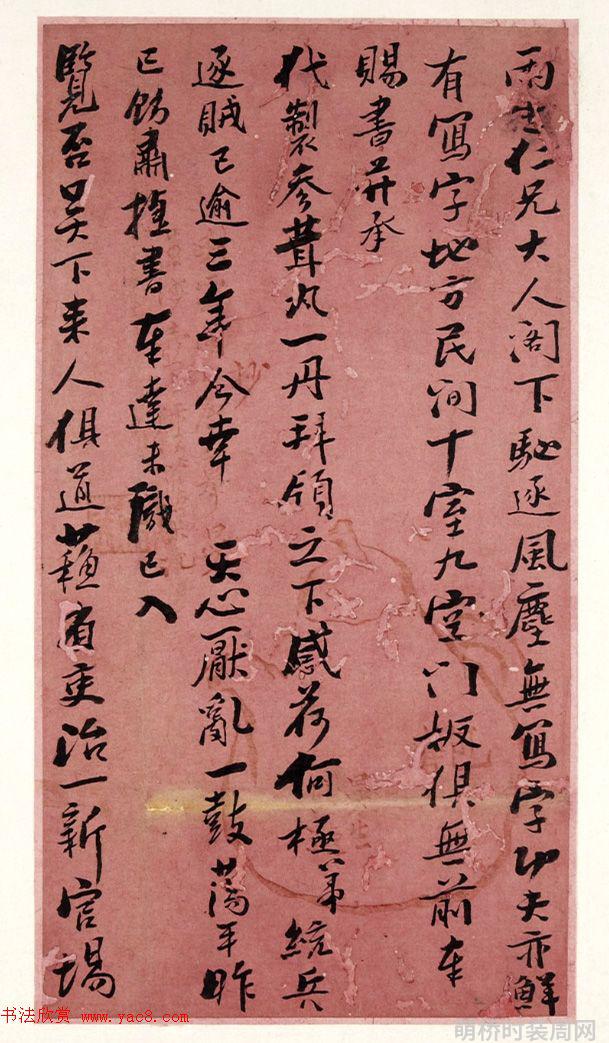 雨生仁兄大人阁下馳逐風塵無寫字功夫亦鮮
有寫字地方民间十室九空门板俱無前奉
賜書并承
代製参茸丸一丹拜領之下感荷何極第統兵
逐賊已逾三年今幸 天心厭亂一鼓蕩平昨
已飭肅椎書奉達未識已入
覽否吴下来人俱道蘇省吏治一新官場
书法欣赏 www.yac8.com
明桥时装周网